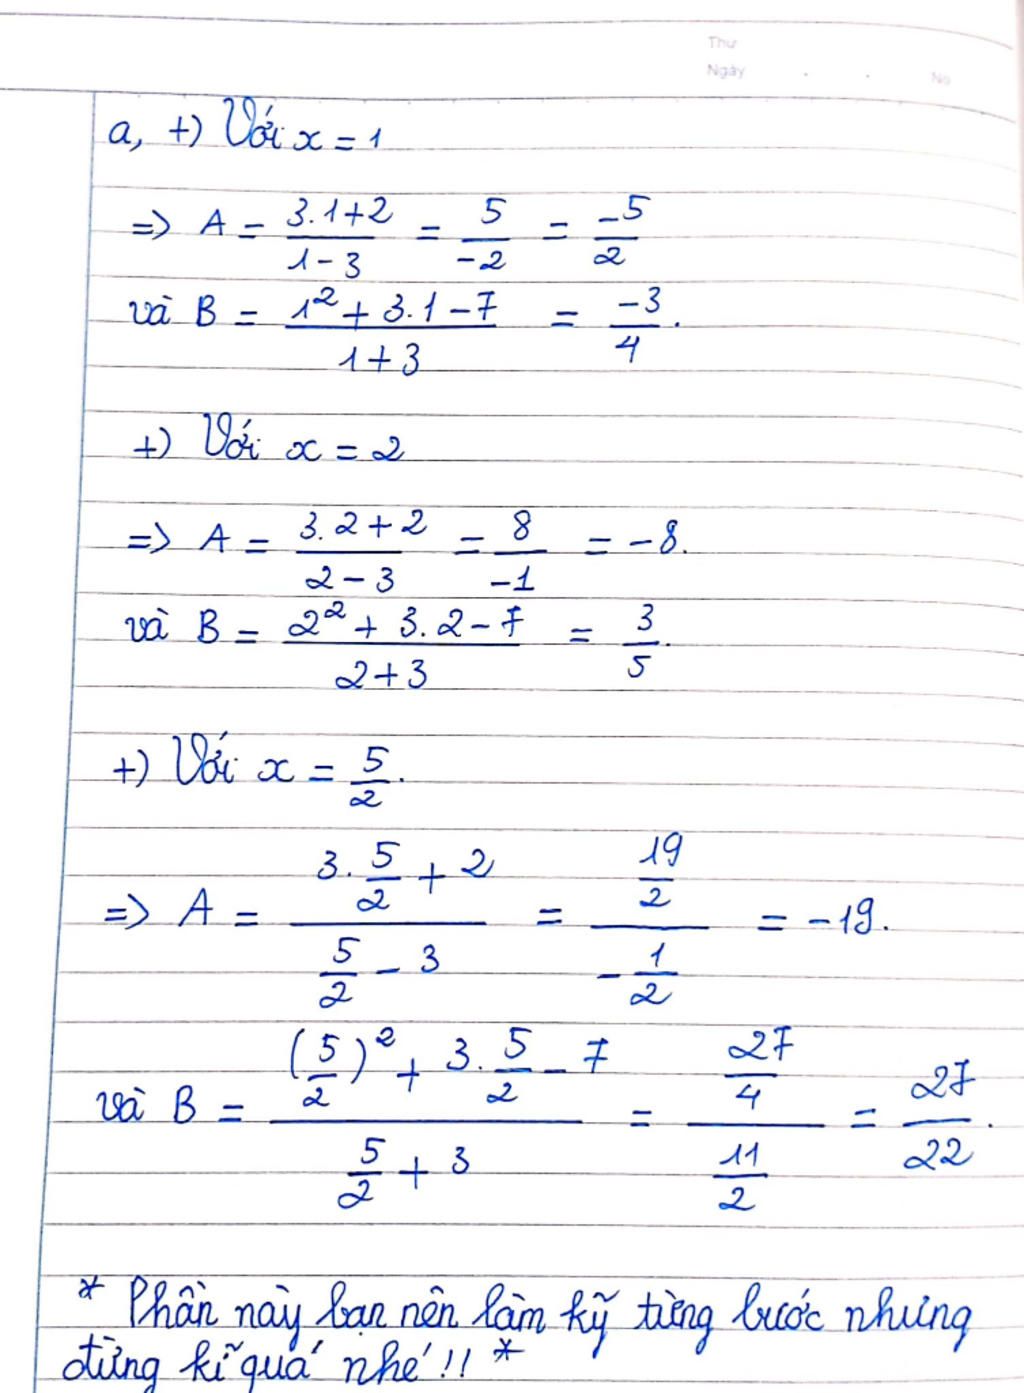 Thứ
Ngày . . No
a, +) Với x = 1
=> A = \frac{3.1+2}{1-3} = \frac{5}{-2} = \frac{-5}{2}
và B = \frac{1^2 + 3.1 - 7}{1+3} = \frac{-3}{4}.
+) Với x = 2
=> A = \frac{3.2+2}{2-3} = \frac{8}{-1} = -8.
và B = \frac{2^2 + 3.2 - 7}{2+3} = \frac{3}{5}.
+) Với x = \frac{5}{2}.
=> A = \frac{3.\frac{5}{2} + 2}{\frac{5}{2} - 3} = \frac{\frac{19}{2}}{-\frac{1}{2}} = -19.
và B = \frac{(\frac{5}{2})^2 + 3.\frac{5}{2} - 7}{\frac{5}{2} + 3} = \frac{\frac{27}{4}}{\frac{11}{2}} = \frac{27}{22}.
* Phần này bạn nên làm kỹ từng bước nhưng
đừng kĩ quá nhé !! *